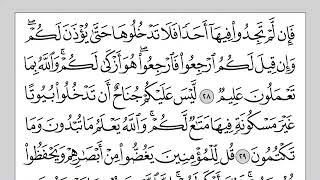 فَإِن لَّمْ تَجِدُوا۟ فِيهَآ أَحَدًا فَلَا تَدْخُلُوهَا حَتَّىٰ يُؤْذَنَ لَكُمْ ۖ
وَإِن قِيلَ لَكُمُ ٱرْجِعُوا۟ فَٱرْجِعُوا۟ ۖ هُوَ أَزْكَىٰ لَكُمْ ۚ وَٱللَّهُ بِمَا
تَعْمَلُونَ عَلِيمٌ ٢٨ لَّيْسَ عَلَيْكُمْ جُنَاحٌ أَن تَدْخُلُوا۟ بُيُوتًا
غَيْرَ مَسْكُونَةٍ فِيهَا مَتَٰعٌ لَّكُمْ ۚ وَٱللَّهُ يَعْلَمُ مَا تُبْدُونَ وَمَا
تَكْتُمُونَ ٢٩ قُل لِّلْمُؤْمِنِينَ يَغُضُّوا۟ مِنْ أَبْصَٰرِهِمْ وَيَحْفَظُوا۟